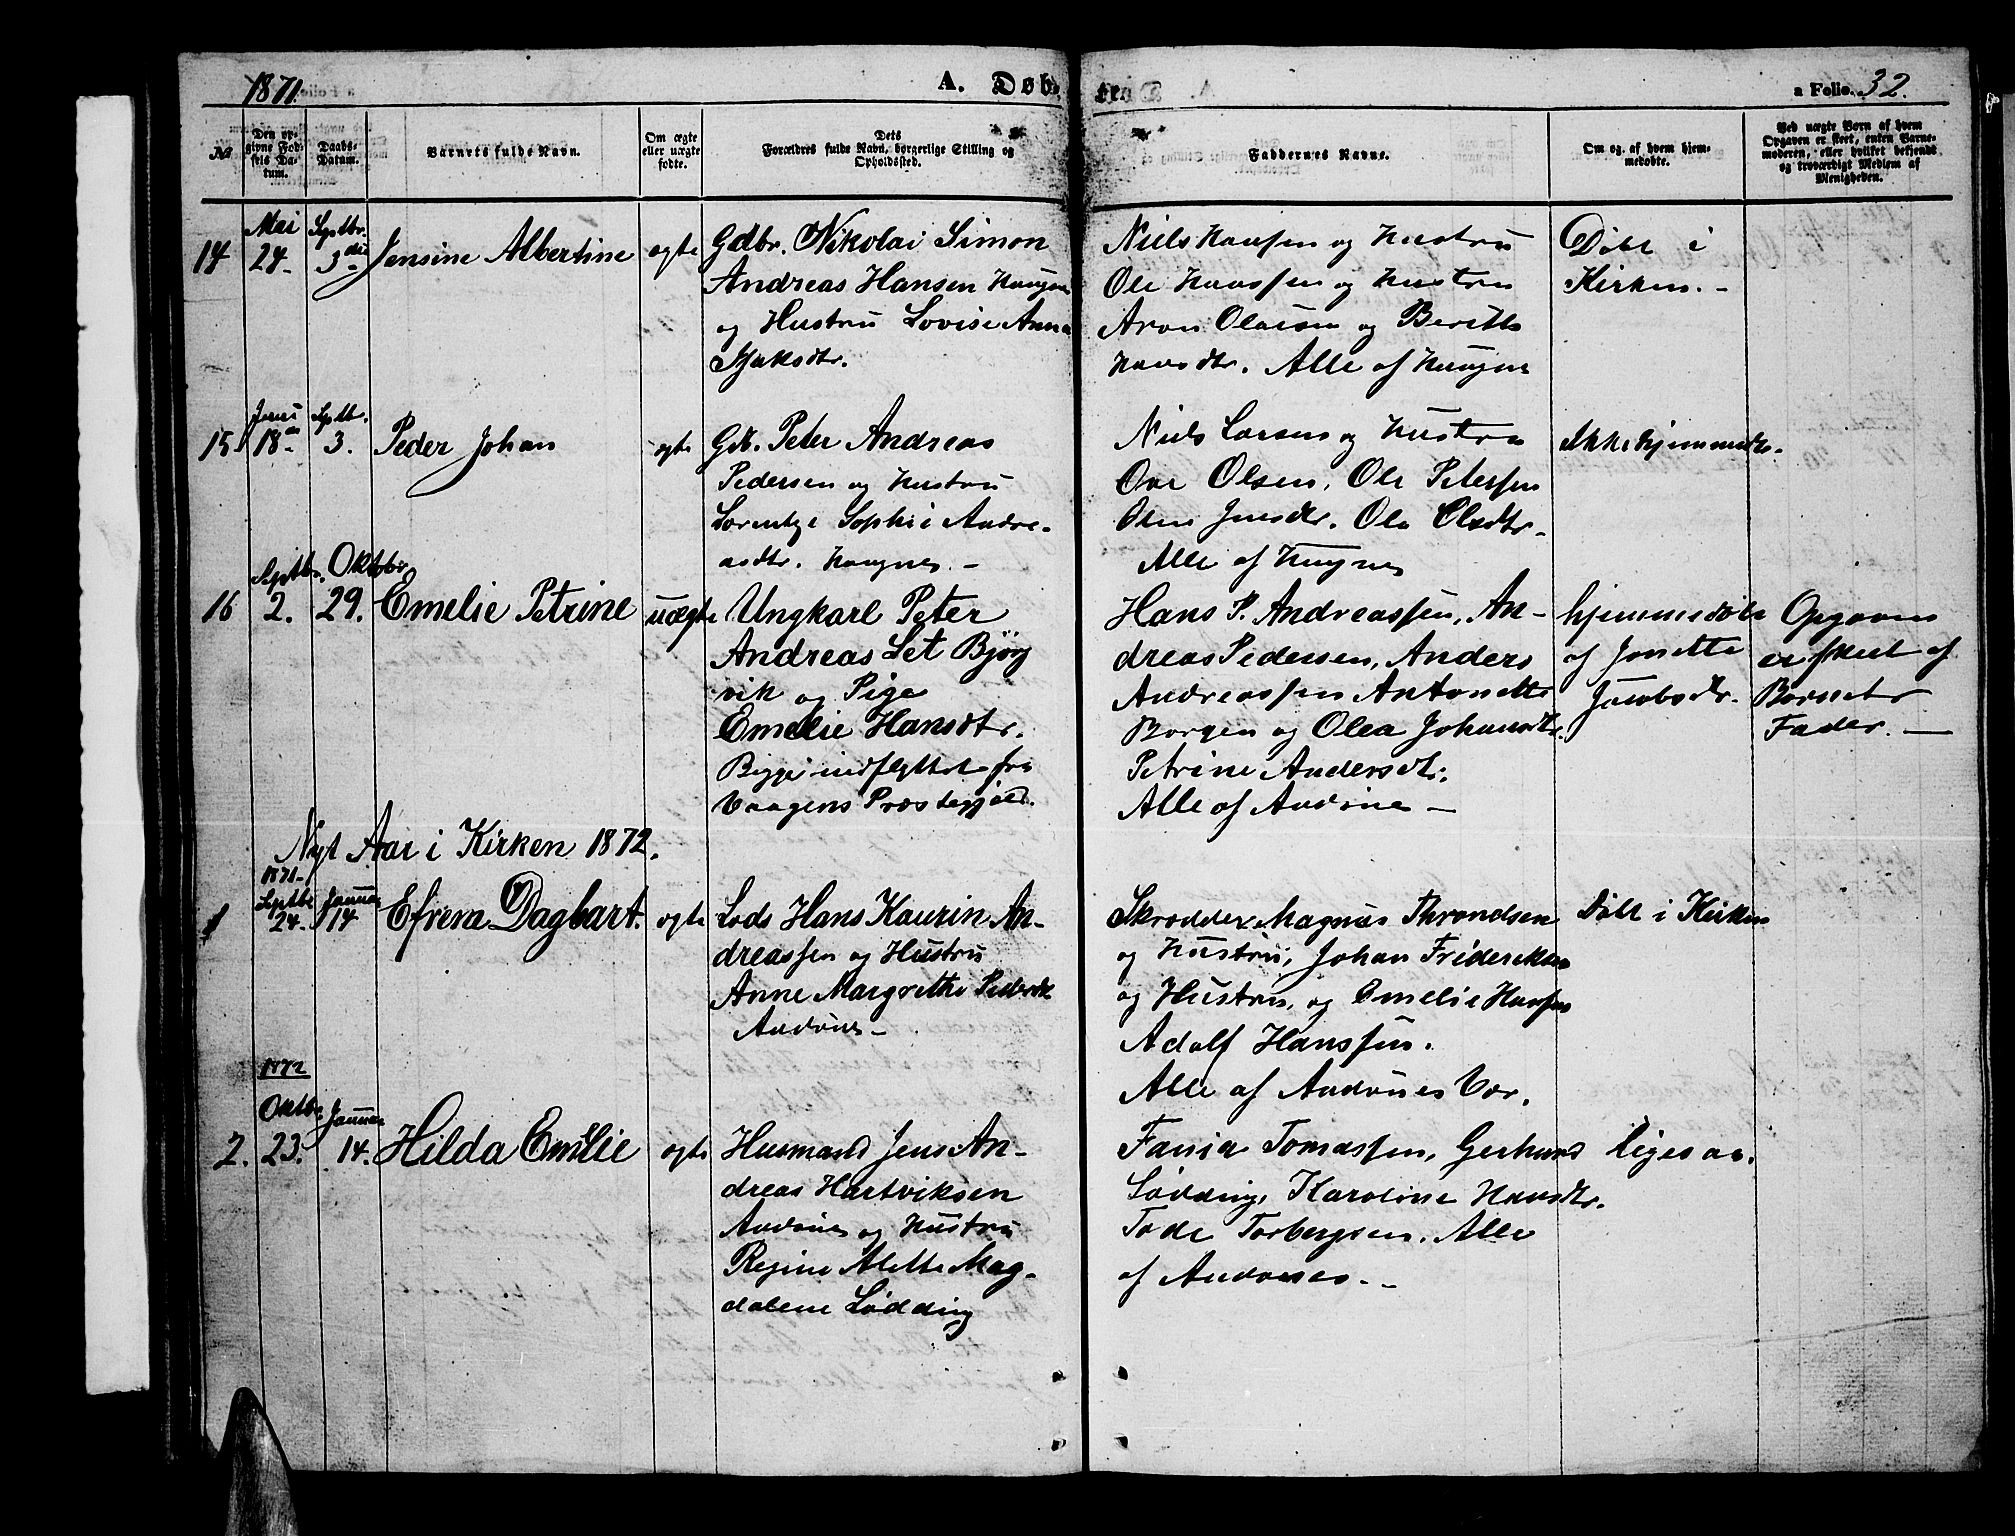 1871.
A. Døbte
a Folio. 32.
No
Den opgivne Fødsels Datum.
Daabs-Datum.
Barnets fulde Navn.
Om ægte eller uægte fødte.
Dets Forældres fulde Navn, borgerlige Stilling og Opholdssted.
Faddernes Navne.
Om og, af hvem hjemmedøbte.
Ved uægte Børn af hvem Opgaven er skeet, enten Barnemoderen, eller hvilket bekjendt og troværdigt Medlem af Menigheden.
14
Mai
24.
Sptbr.
3die
Jensine Albertine
ægte
Gdbr. Nikolai Simon
Andreas Hansen Haugnes
og Hustru Lovise Anna
Isaksdtr.
Niels Hansen og Hustru
Ole Hanssen og Hustru
Aron Olaisen og Beritte
Hansdtr. Alle af Haugnes
Døbt i
Kirken. -
15
Juni
18de
Sptbr.
3.
Peder Johan
ægte
Gdb. Peter Andreas
Pedersen og Hustru
Lorentze Sophie Andre-
asdtr. Haugnes. -
Niels Larsen og Hustru
Ove Olsen, Ole Peterssen
Oline Jensdtr. Ole Olsdtr.
Alle af Haugnes
Ikke hjemmedt.
16
Septbr.
2.
Oktobr.
29.
Emelie Petrine
uægte
Ungkarl Peter
Andreas Set Bjørg
vik og Pige
Emelie Hansdtr.
Begge indflyttet fra
Vaagens Præstegjeld.
Hans P. Andreassen, An-
dreas Pedersen, Anders
Andreassen Antonette
Borgen og Olea Johansdtr.
Petrine Andersdtr.
Alle af Andøne -
hjemmedøbt
af Jonette
Jacobsdtr.
Opgaven
er skeet af
Barnets
Fader. -
Nyt Aar i Kirken 1872.
1
1871.
Septbr
24.
Januar
14
Efrem Dagbart.
ægte
Lods Hans Kaurin An-
dreassen og Hustru
Anne Margrethe Pedersdt
Andønes -
Skrædder Magnus Throndsen
og Hustru, Johan Frideriksen
og Hustru, og Emelie Hanssen
Adolf Hanssen.
Alle af Andønes Vær.
Døbt i Kirken
2.
1872
Oktbr.
23.
Januar
14.
Hilda Emilie
ægte
Husmand Jens An-
dreas Hartviksen
Andønes og Hustru
Regine Alette Mag-
dalene Lødding
Tomassen, Gerhard
Lødding, Karoline Hansdtr.
Tode Torbergsen. Alle
af Andønes. -
ligesaa.